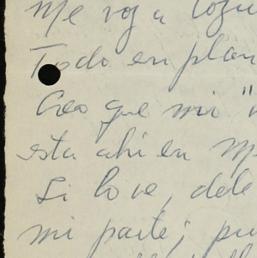 Me voy a
Todo en plan
Creo que mi "
esta ahi en
Si lo ve, dele
mi parte; pu